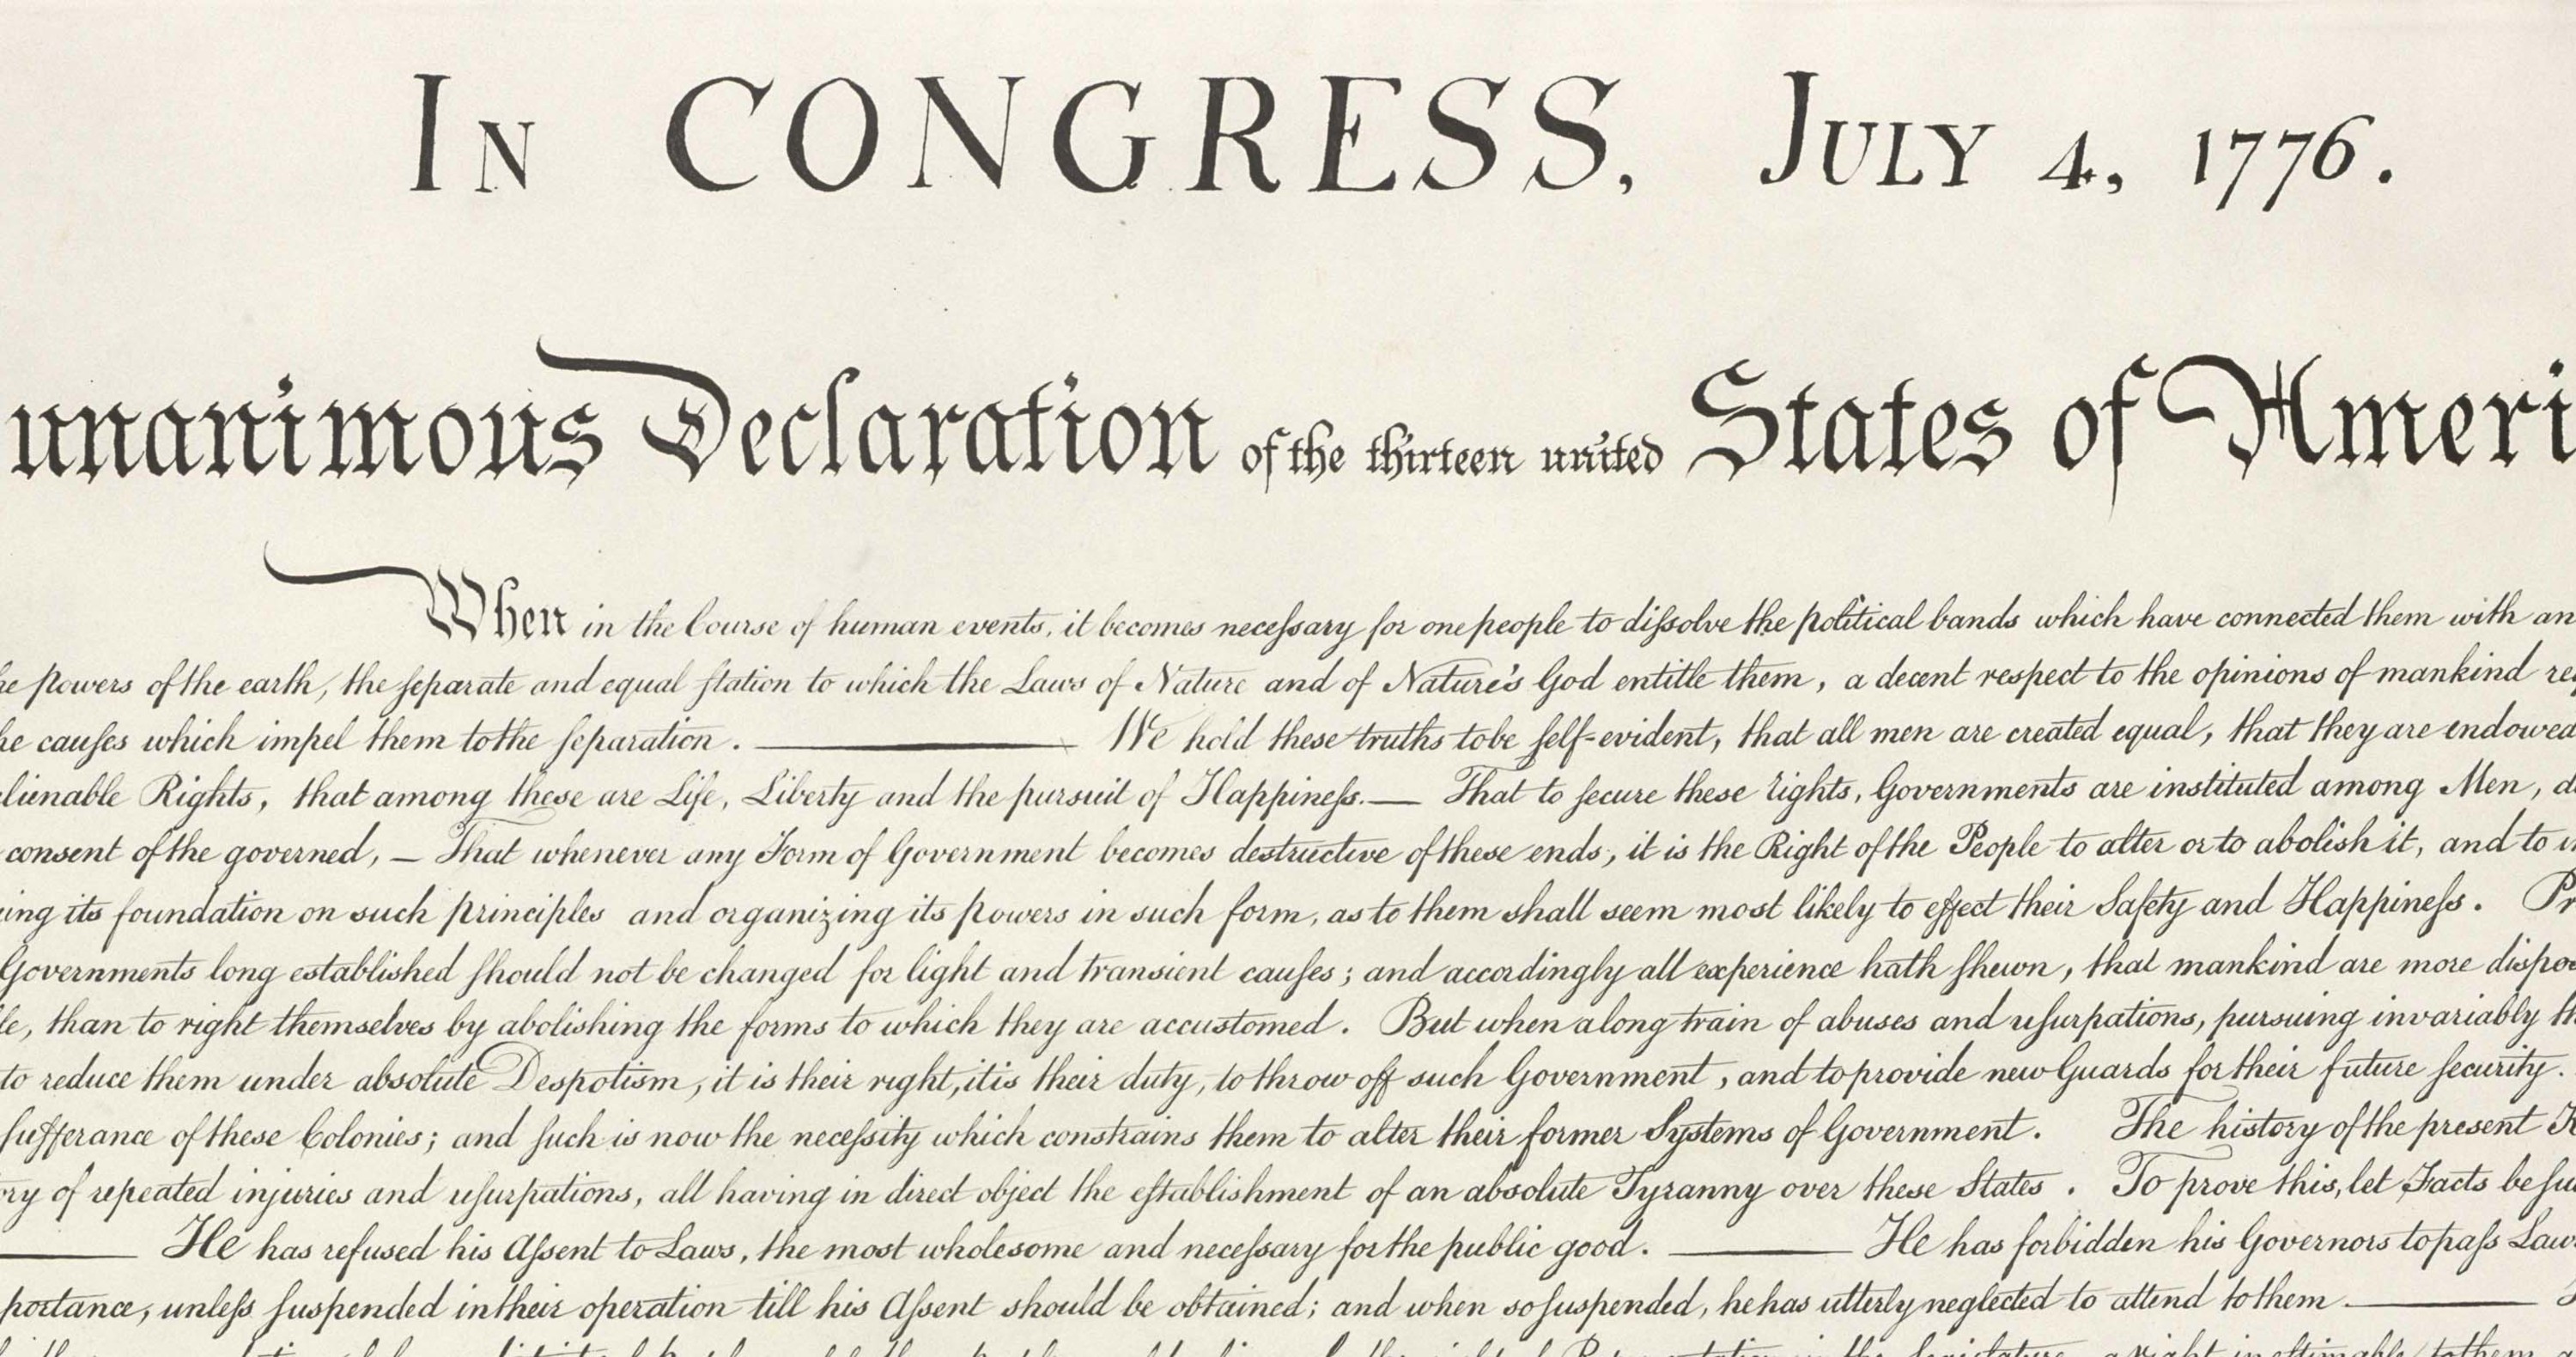 In CONGRESS, July 4, 1776.
unanimous Declaration of the thirteen united States of Ameri
When in the Course of human events, it becomes necessary for one people to dissolve the political bands which have connected them with an
he powers of the earth, the separate and equal station to which the Laws of Nature and of Nature's God entitle them, a decent respect to the opinions of mankind re
he causes which impel them to the separation. ——— We hold these truths to be self-evident, that all men are created equal, that they are endowed
lienable Rights, that among these are Life, Liberty and the pursuit of Happiness.— That to secure these rights, Governments are instituted among Men, d
consent of the governed, — That whenever any Form of Government becomes destructive of these ends, it is the Right of the People to alter or to abolish it, and to in
ing its foundation on such principles and organizing its powers in such form, as to them shall seem most likely to effect their Safety and Happiness. Pr
Governments long established should not be changed for light and transient causes; and accordingly all experience hath shewn, that mankind are more dispo
le, than to right themselves by abolishing the forms to which they are accustomed. But when a long train of abuses and usurpations, pursuing invariably th
to reduce them under absolute Despotism, it is their right, it is their duty, to throw off such Government, and to provide new Guards for their future security.
sufferance of these Colonies; and such is now the necessity which constrains them to alter their former Systems of Government. The history of the present K
ory of repeated injuries and usurpations, all having in direct object the establishment of an absolute Tyranny over these States. To prove this, let Facts be su
——— He has refused his Assent to Laws, the most wholesome and necessary for the public good. ——— He has forbidden his Governors to pass Laws
portance, unless suspended in their operation till his Assent should be obtained; and when so suspended, he has utterly neglected to attend to them. ———